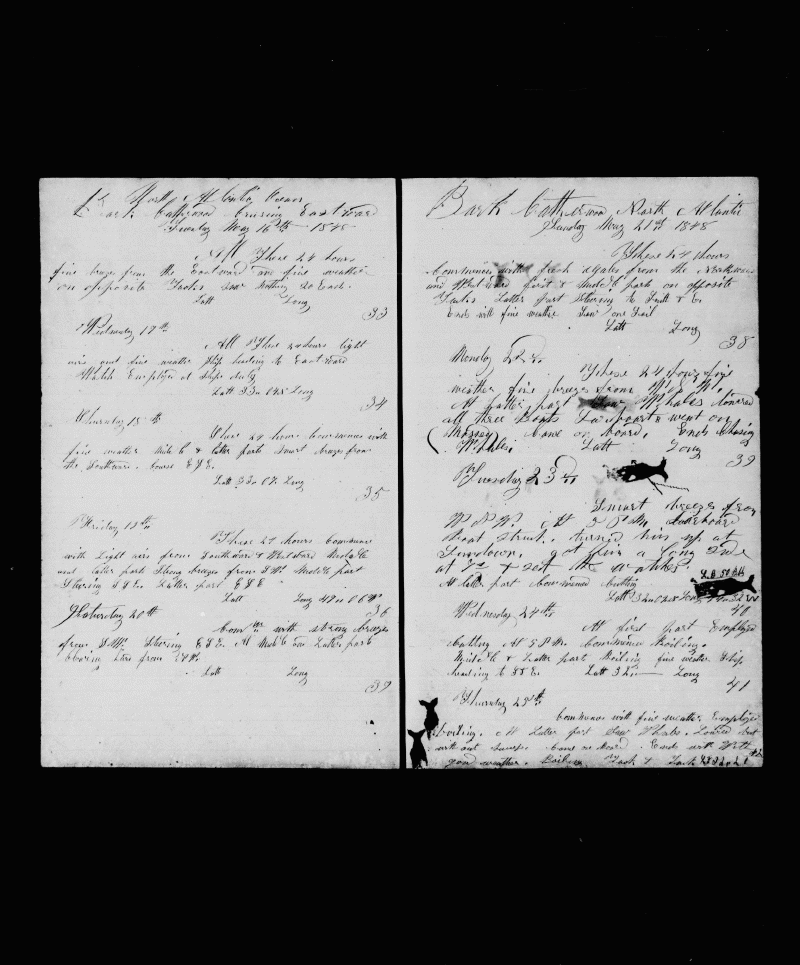 North Atlantic Ocean
Bark Catherwood Cruising Eastward
Tuesday May 16th 1848
All These 24 hours
fine breeze from the Eastward and fine weather
on opposite Tacks Saw Nothing So Ends
Latt Long
33
Wednesday 17th
All These 24 hours light
airs and fine weather Ship heading to Eastward
Watch Employed at Ships duty
Latt 33 Long
34
Thursday 18th
These 24 hours commence with
fine weather Middle & latter part Smart breeze from
the Southward. Course ESE.
Latt Long
35
Friday 19th
These 24 hours Commence
with Light airs from Southward & Westward Middle
and latter part Strong breezes from SW. Middle part
Steering SSE. Latter part ESE
Latt Long 47 06 W
36
Saturday 20th
Com with strong breezes
from SW. Steering ESE. At Middle and Latter part
blowing
Latt Long
37
Bark Catherwood North Atlantic
Sunday May 21st 1848
These 24 hours
Commences with fresh gales from the Northward
and Westward first & Middle part on opposite
Tacks Latter part Steering to
Ends with fine weather Saw one Sail
Latt Long
38
Monday 22
These 24 hours fine
weather fine breezes from
At latter part Saw Whales lowered
all three Boats Larboard went on
Missed came on board. Ends Chasing
Whales. Latt Long
39
Tuesday 23
Smart breeze from
WNW. At 5 PM. Larboard
Boat Struck. turned him up at
Sundown. got fin a long side
at & set the watches.
At latter part commenced Cutting
Latt Long
40
Wednesday 24th
At first part Employed
Cutting At 5 PM. Commence Boiling.
Middle & Latter part Boiling fine weather Ship
heading to SSE. Latt Long
41
Thursday 25th
Commence with fine weather Employed
boiling. At Latter part Saw Whales. Lowered but
without Success. Came on Board. Ends with
good weather. Boiling